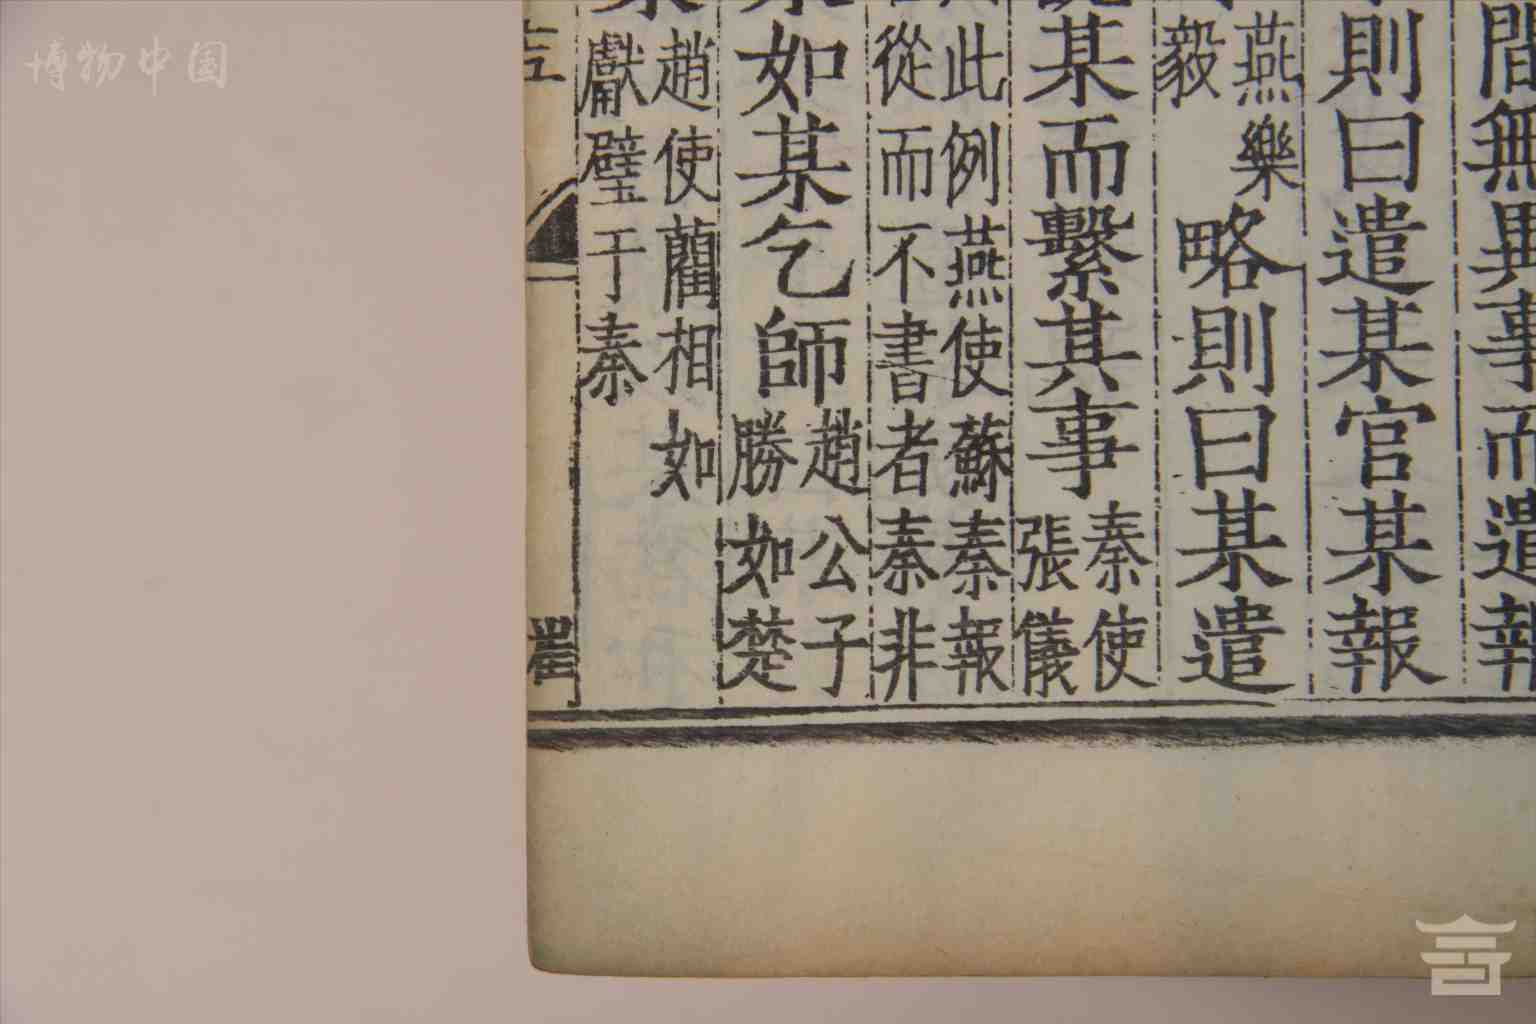 間無異事而遣報
則曰遣某官某報
燕樂
毅
略則曰某遣
某而繫其事
秦使
張儀
此例燕使蘇秦報
從而不書者秦非
如某乞師
趙公子
勝如楚
趙使藺相如
獻璧于秦
博物中国